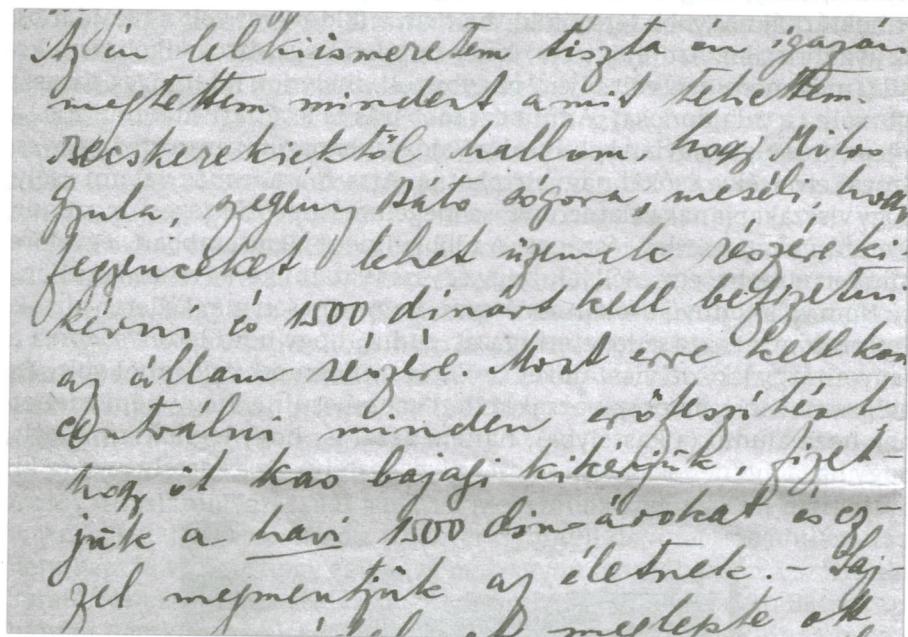 Az én lelkiismeretem tiszta én igazán
megtettem mindent amit tehettem.
Becskerekiektől hallom, hogy Milos
Gyula, szegény Báto sógora, meséli, hogy
fegyenceket lehet üzemek részére ki-
kérni és 1500 dinárt kell befizetni
az állam részére. Most erre kell kon
centrálni minden erőfeszítést
hogy őt kao bajagi kikérjük, fizet-
jük a havi 1500 dinárokat és ez-
zel megmentjük az életnek. – Saj-
meglepte ott